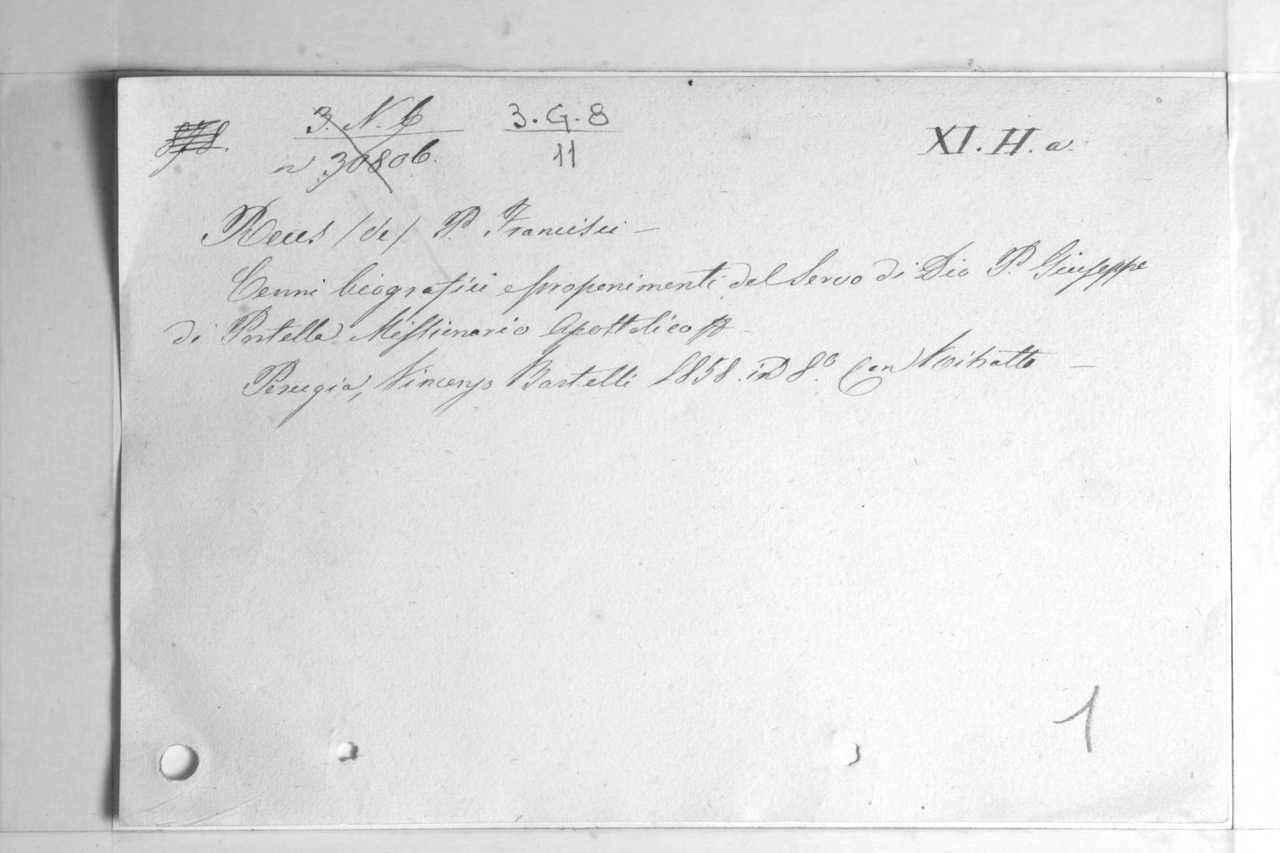 3. N. 6 3. G. 8 XI. H. a.
n 30806. 11
Reus (de) P. Francisci —
Cenni biografici e proponimenti del Servo di Dio P. Giuseppe
di Portella Missionario Apostolico
Perugia, Vincenzo Bartelli 1858. in 8.º Con Ritratto —
1